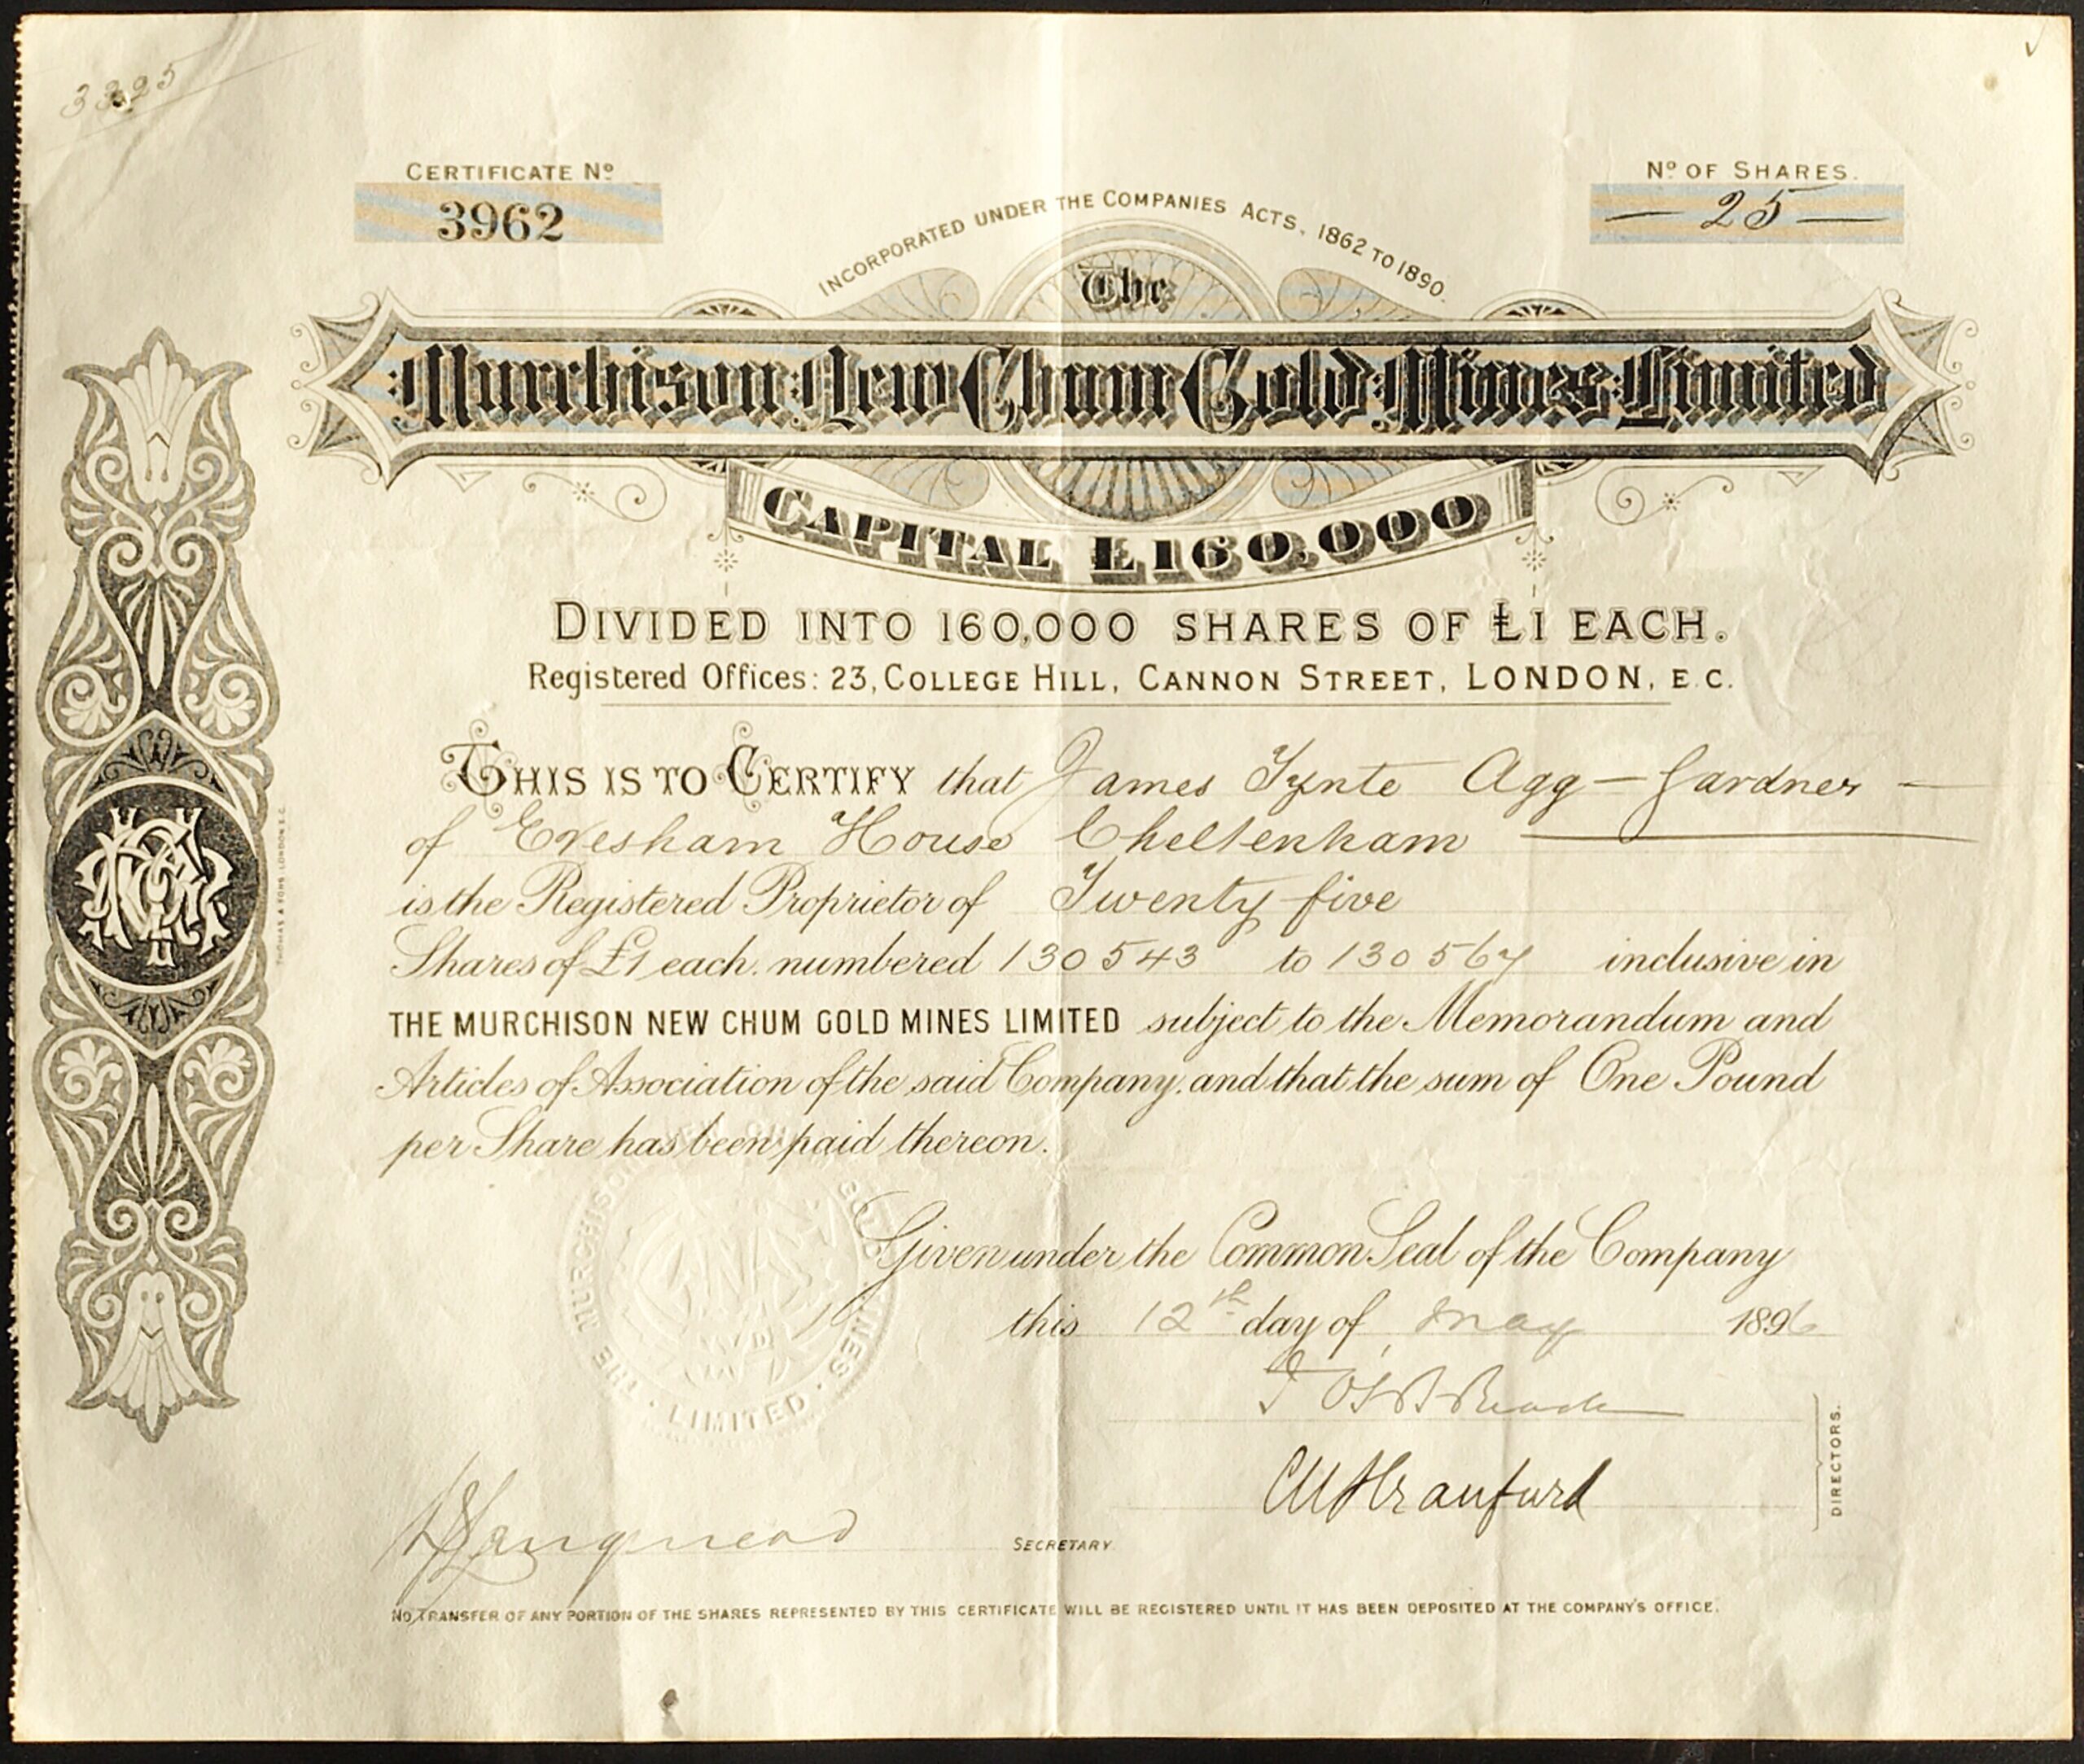 3325
CERTIFICATE Nº
3962
Nº OF SHARES.
— 25 —
INCORPORATED UNDER THE COMPANIES ACTS, 1862 TO 1890.
The
Murchison New Chum Gold Mines Limited
CAPITAL £160,000
DIVIDED INTO 160,000 SHARES OF £1 EACH.
Registered Offices: 23, COLLEGE HILL, CANNON STREET, LONDON, E.C.
THIS IS TO CERTIFY that James Tynte Agg-Gardner —
of Evesham House Cheltenham
is the Registered Proprietor of Twenty five
Shares of £1 each. numbered 130543 to 130567 inclusive in
THE MURCHISON NEW CHUM GOLD MINES LIMITED subject to the Memorandum and
Articles of Association of the said Company, and that the sum of One Pound
per Share has been paid thereon.
THE MURCHISON NEW CHUM GOLD MINES · LIMITED ·
Given under the Common Seal of the Company
this 12th day of May 1896
DIRECTORS.
SECRETARY.
NO TRANSFER OF ANY PORTION OF THE SHARES REPRESENTED BY THIS CERTIFICATE WILL BE REGISTERED UNTIL IT HAS BEEN DEPOSITED AT THE COMPANY'S OFFICE.